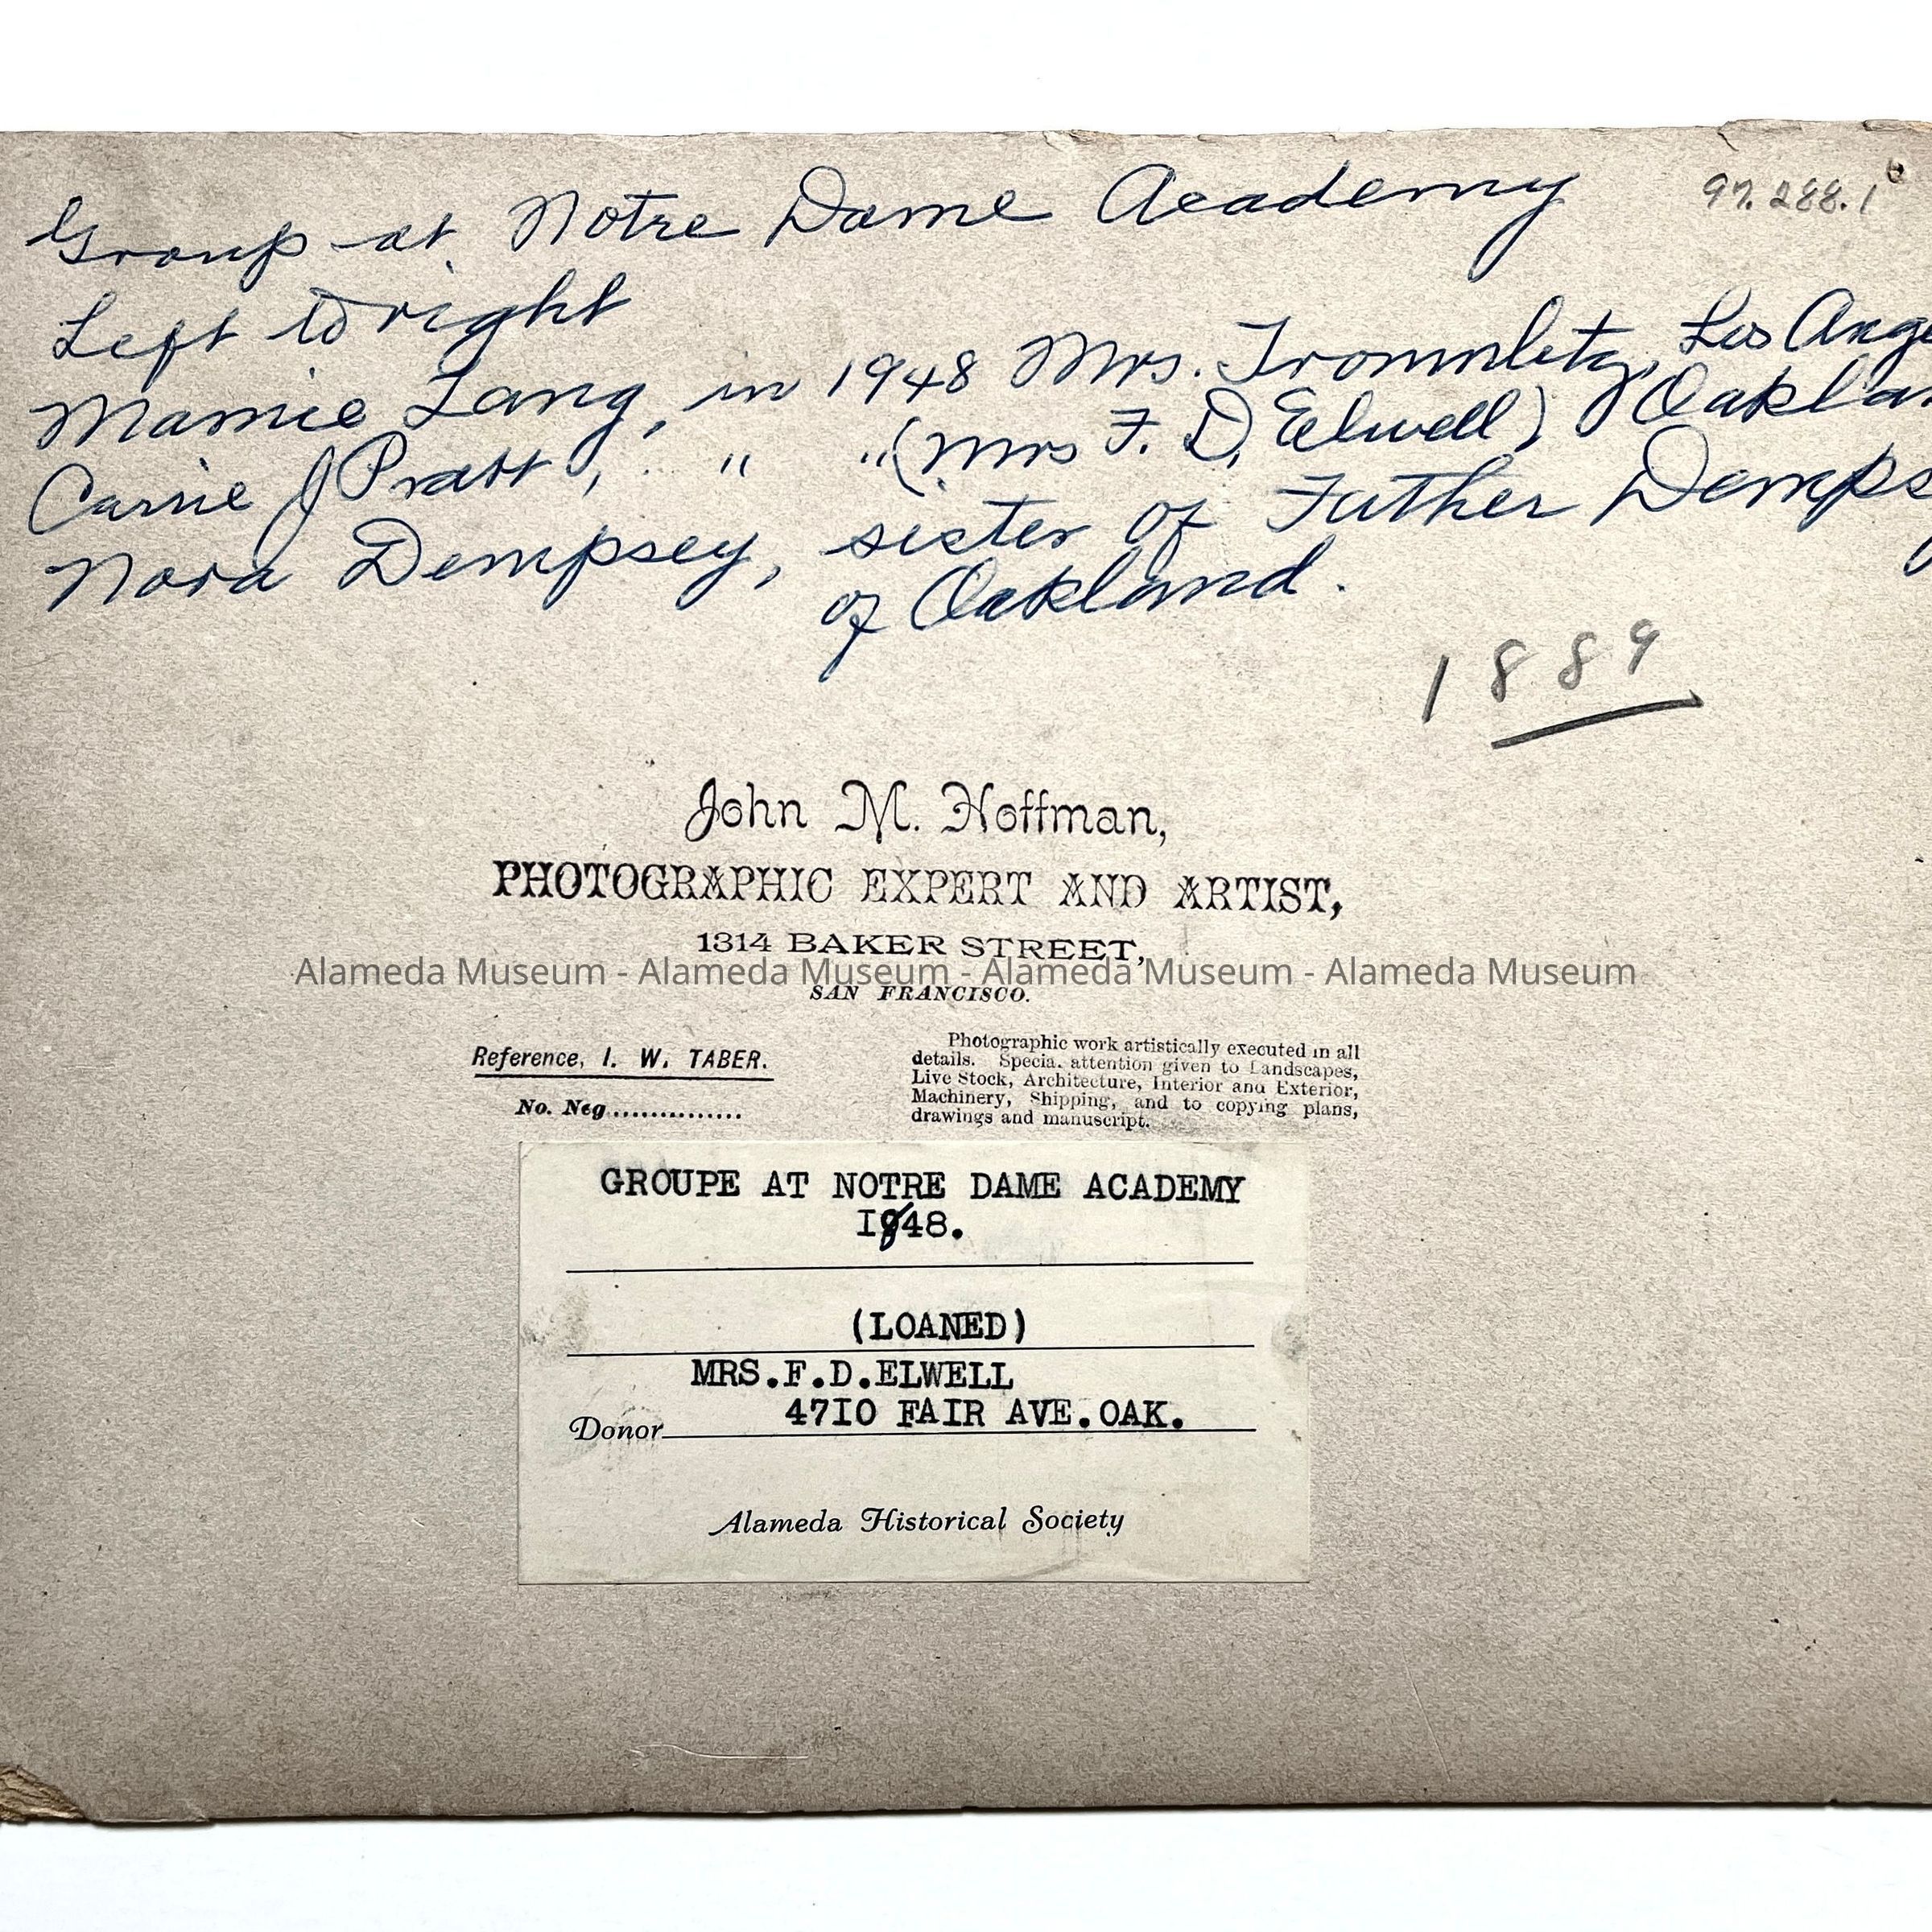 Group at Notre Dame Academy
97.288.1
Left to right
Mamie Lang, in 1948 Mrs. Trommlitz, Los Ange
Carrie J Pratt, " " (Mrs F. D. Elwell) Oaklan
Nora Dempsey, sister of Futher Demps
of Oakland.
1889
John M. Hoffman,
PHOTOGRAPHIC EXPERT AND ARTIST,
1314 BAKER STREET,
Alameda Museum - Alameda Museum - Alameda Museum - Alameda Museum
SAN FRANCISCO.
Reference, I. W. TABER.
No. Neg..............
Photographic work artistically executed in all
details. Specia. attention given to Landscapes,
Live Stock, Architecture, Interior and Exterior,
Machinery, Shipping, and to copying plans,
drawings and manuscript.
GROUPE AT NOTRE DAME ACADEMY
I848.
(LOANED)
MRS.F.D.ELWELL
47IO FAIR AVE.OAK.
Donor
Alameda Historical Society